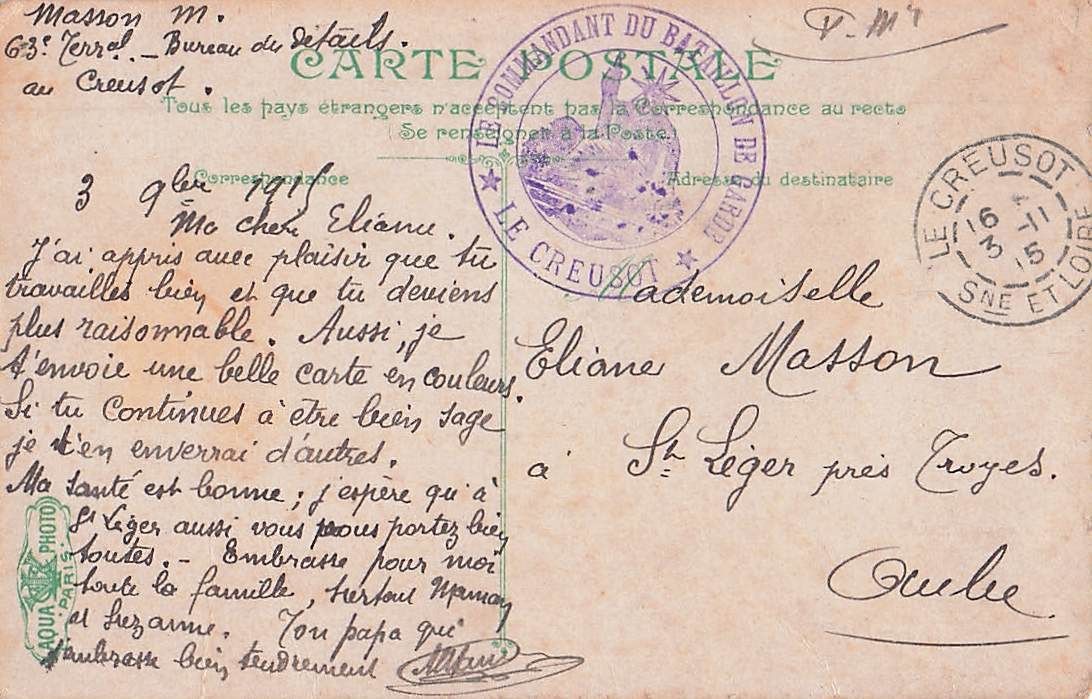 Masson M.
63e Terral. - Bureau des détails.
au Creusot.
F. Mre
CARTE POSTALE
Tous les pays étrangers n'acceptent pas la Correspondance au recto
(Se renseigner à la Poste)
Correspondance
Adresse du destinataire
★ LE COMMANDANT DU BATAILLON DE GARDE ★
LE CREUSOT
LE CREUSOT
16
3 -11 15
SNE ET LOIRE
3 9bre 1915
Ma chère Eliane.
J'ai appris avec plaisir que tu
travailles bien et que tu deviens
plus raisonnable. Aussi, je
t'envoie une belle carte en couleurs.
Si tu continues à être bien sage
je t'en enverrai d'autres.
Ma santé est bonne ; j'espère qu'à
St Léger aussi vous vous portez bien
toutes. - Embrasse pour moi
toute la famille, surtout Maman
et Suzanne. Ton papa qui
t'embrasse bien tendrement
Mademoiselle
Eliane Masson
à St Léger près Troyes.
Aube
AQUA PHOTO
PARIS.